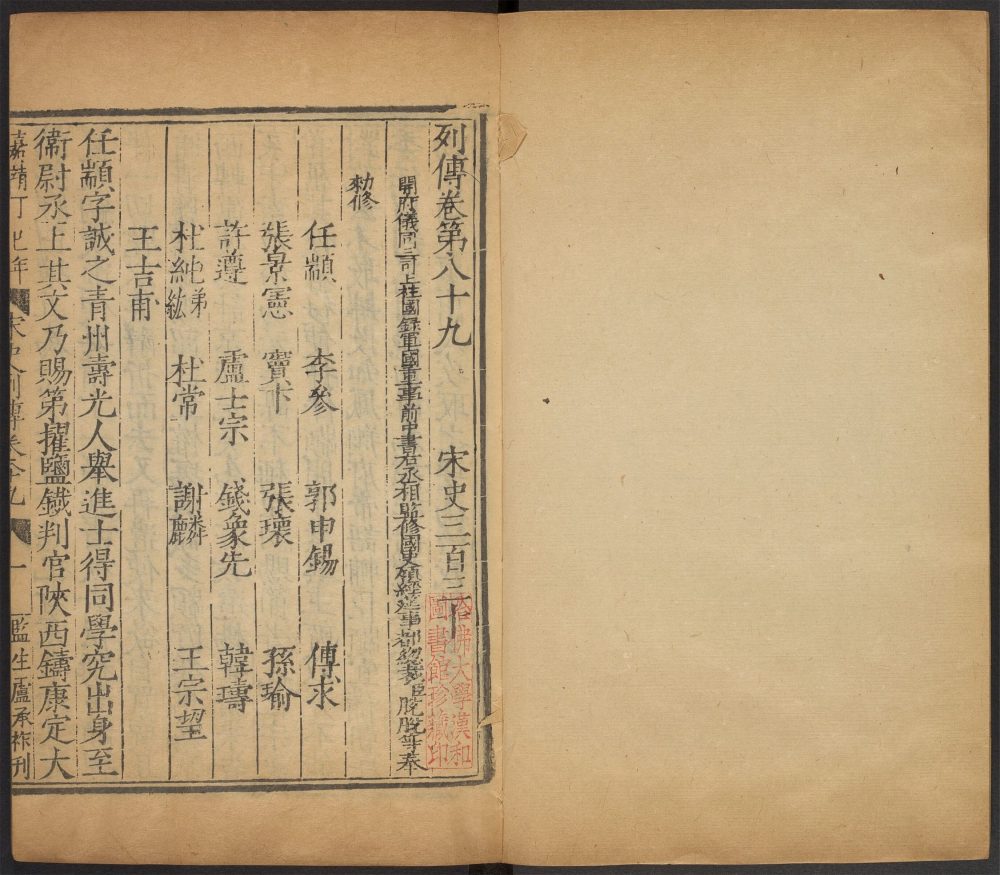 列傳卷第八十九 宋史三百三十
開府儀同三司上柱國録軍國重事前中書右丞相監修國史領經筵事都緫裁臣脫脫等奉
勑修
任顓 李參 郭申錫 傅求
張景憲 竇卞 張瓌 孫瑜
許遵 盧士宗 錢象先 韓璹
杜純弟紘 杜常 謝麟 王宗望
王吉甫
任顓字誠之青州壽光人舉進士得同學究出身至
衛尉丞上其文乃賜第擢鹽鐵判官陝西鑄康定大
嘉靖丁巳年 宋史列傳卷八十九 一 監生盧承祚刊
哈佛大學漢和
圖書館珍藏印